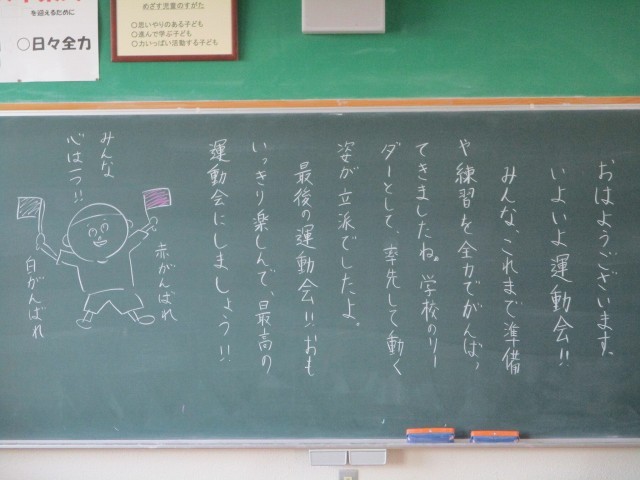 を迎えるために
○日々全力
めざす児童のすがた
○思いやりのある子ども
○進んで学ぶ子ども
○力いっぱい活動する子ども
おはようございます。
いよいよ運動会!!
みんな、これまで準備
や練習を全力でがんばっ
てきましたね。学校のリー
ダーとして、率先して動く
姿が立派でしたよ。
最後の運動会!!おも
いっきり楽しんで、最高の
運動会にしましょう!!
みんな
心は一つ!!
赤がんばれ
白がんばれ